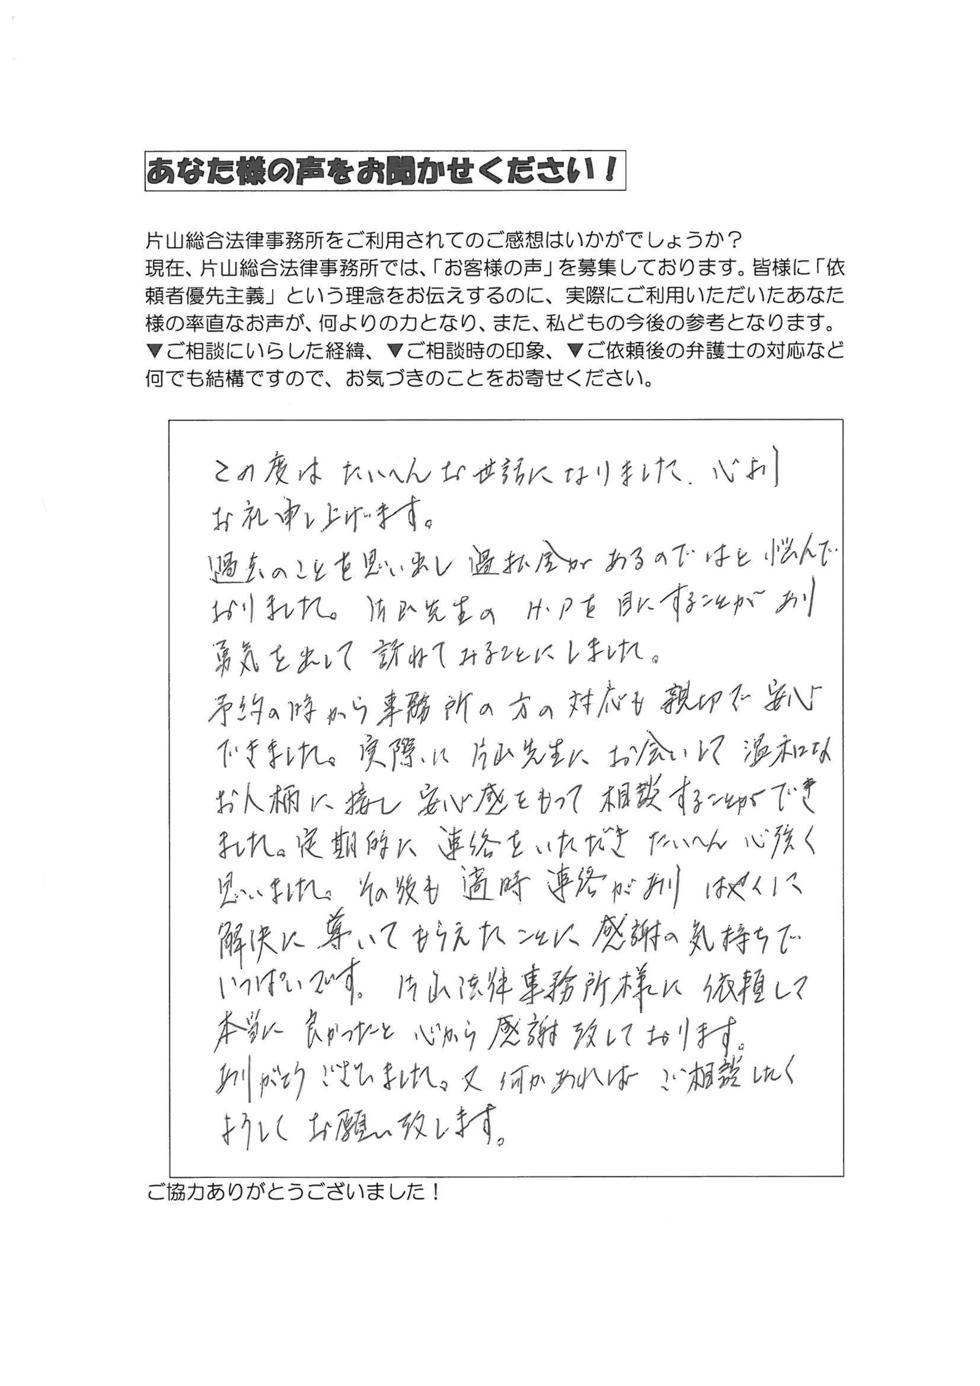 あなた様の声をお聞かせください！
片山総合法律事務所をご利用されてのご感想はいかがでしょうか？
現在、片山総合法律事務所では、「お客様の声」を募集しております。皆様に「依
頼者優先主義」という理念をお伝えするのに、実際にご利用いただいたあなた
様の率直なお声が、何よりの力となり、また、私どもの今後の参考となります。
▼ご相談にいらした経緯、▼ご相談時の印象、▼ご依頼後の弁護士の対応など
何でも結構ですので、お気づきのことをお寄せください。
この度は たいへんお世話になりました. 心より
お礼申し上げます。
過去のことを思い出し 過払金があるのではと 悩んで
おりました。片山先生の H.Pを 目にすることがあり
勇気を出して 訪ねてみることにしました。
予約の時から事務所の方の対応も 親切で 安心
できました。実際に 片山先生に お会いして 温和な
お人柄に接し 安心感をもって 相談することができ
ました。定期的に 連絡をいただき たいへん 心強く
思いました。その後も 適時 連絡があり はやくに
解決に導いてもらえたことに 感謝の気持ちで
いっぱいです。 片山法律事務所様に 依頼して
本当に 良かったと 心から 感謝致しております。
ありがとうございました。又 何かあれば ご相談したく
よろしく お願い致します。
ご協力ありがとうございました！